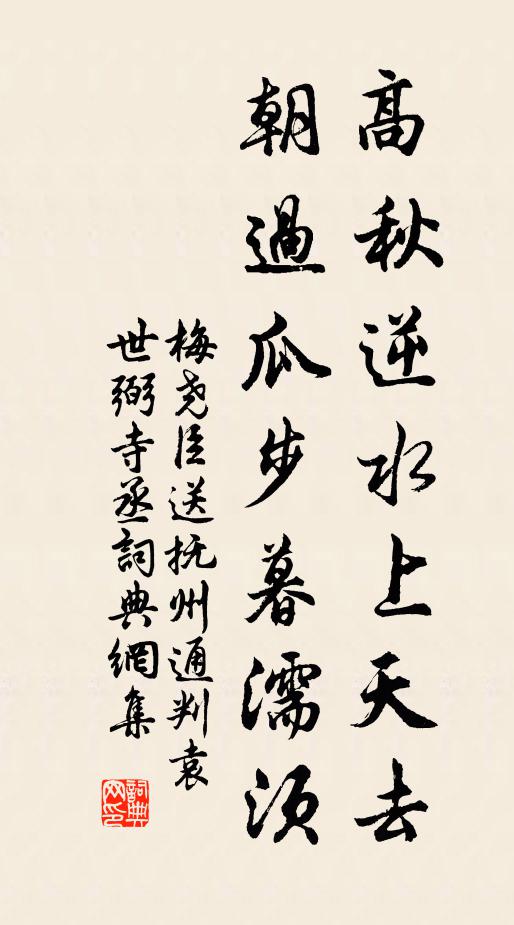 高秋逆水上天去
朝過瓜步暮濡須
梅尧臣送抚州通判袁
世弼寺丞詞典網集
詞典
网印